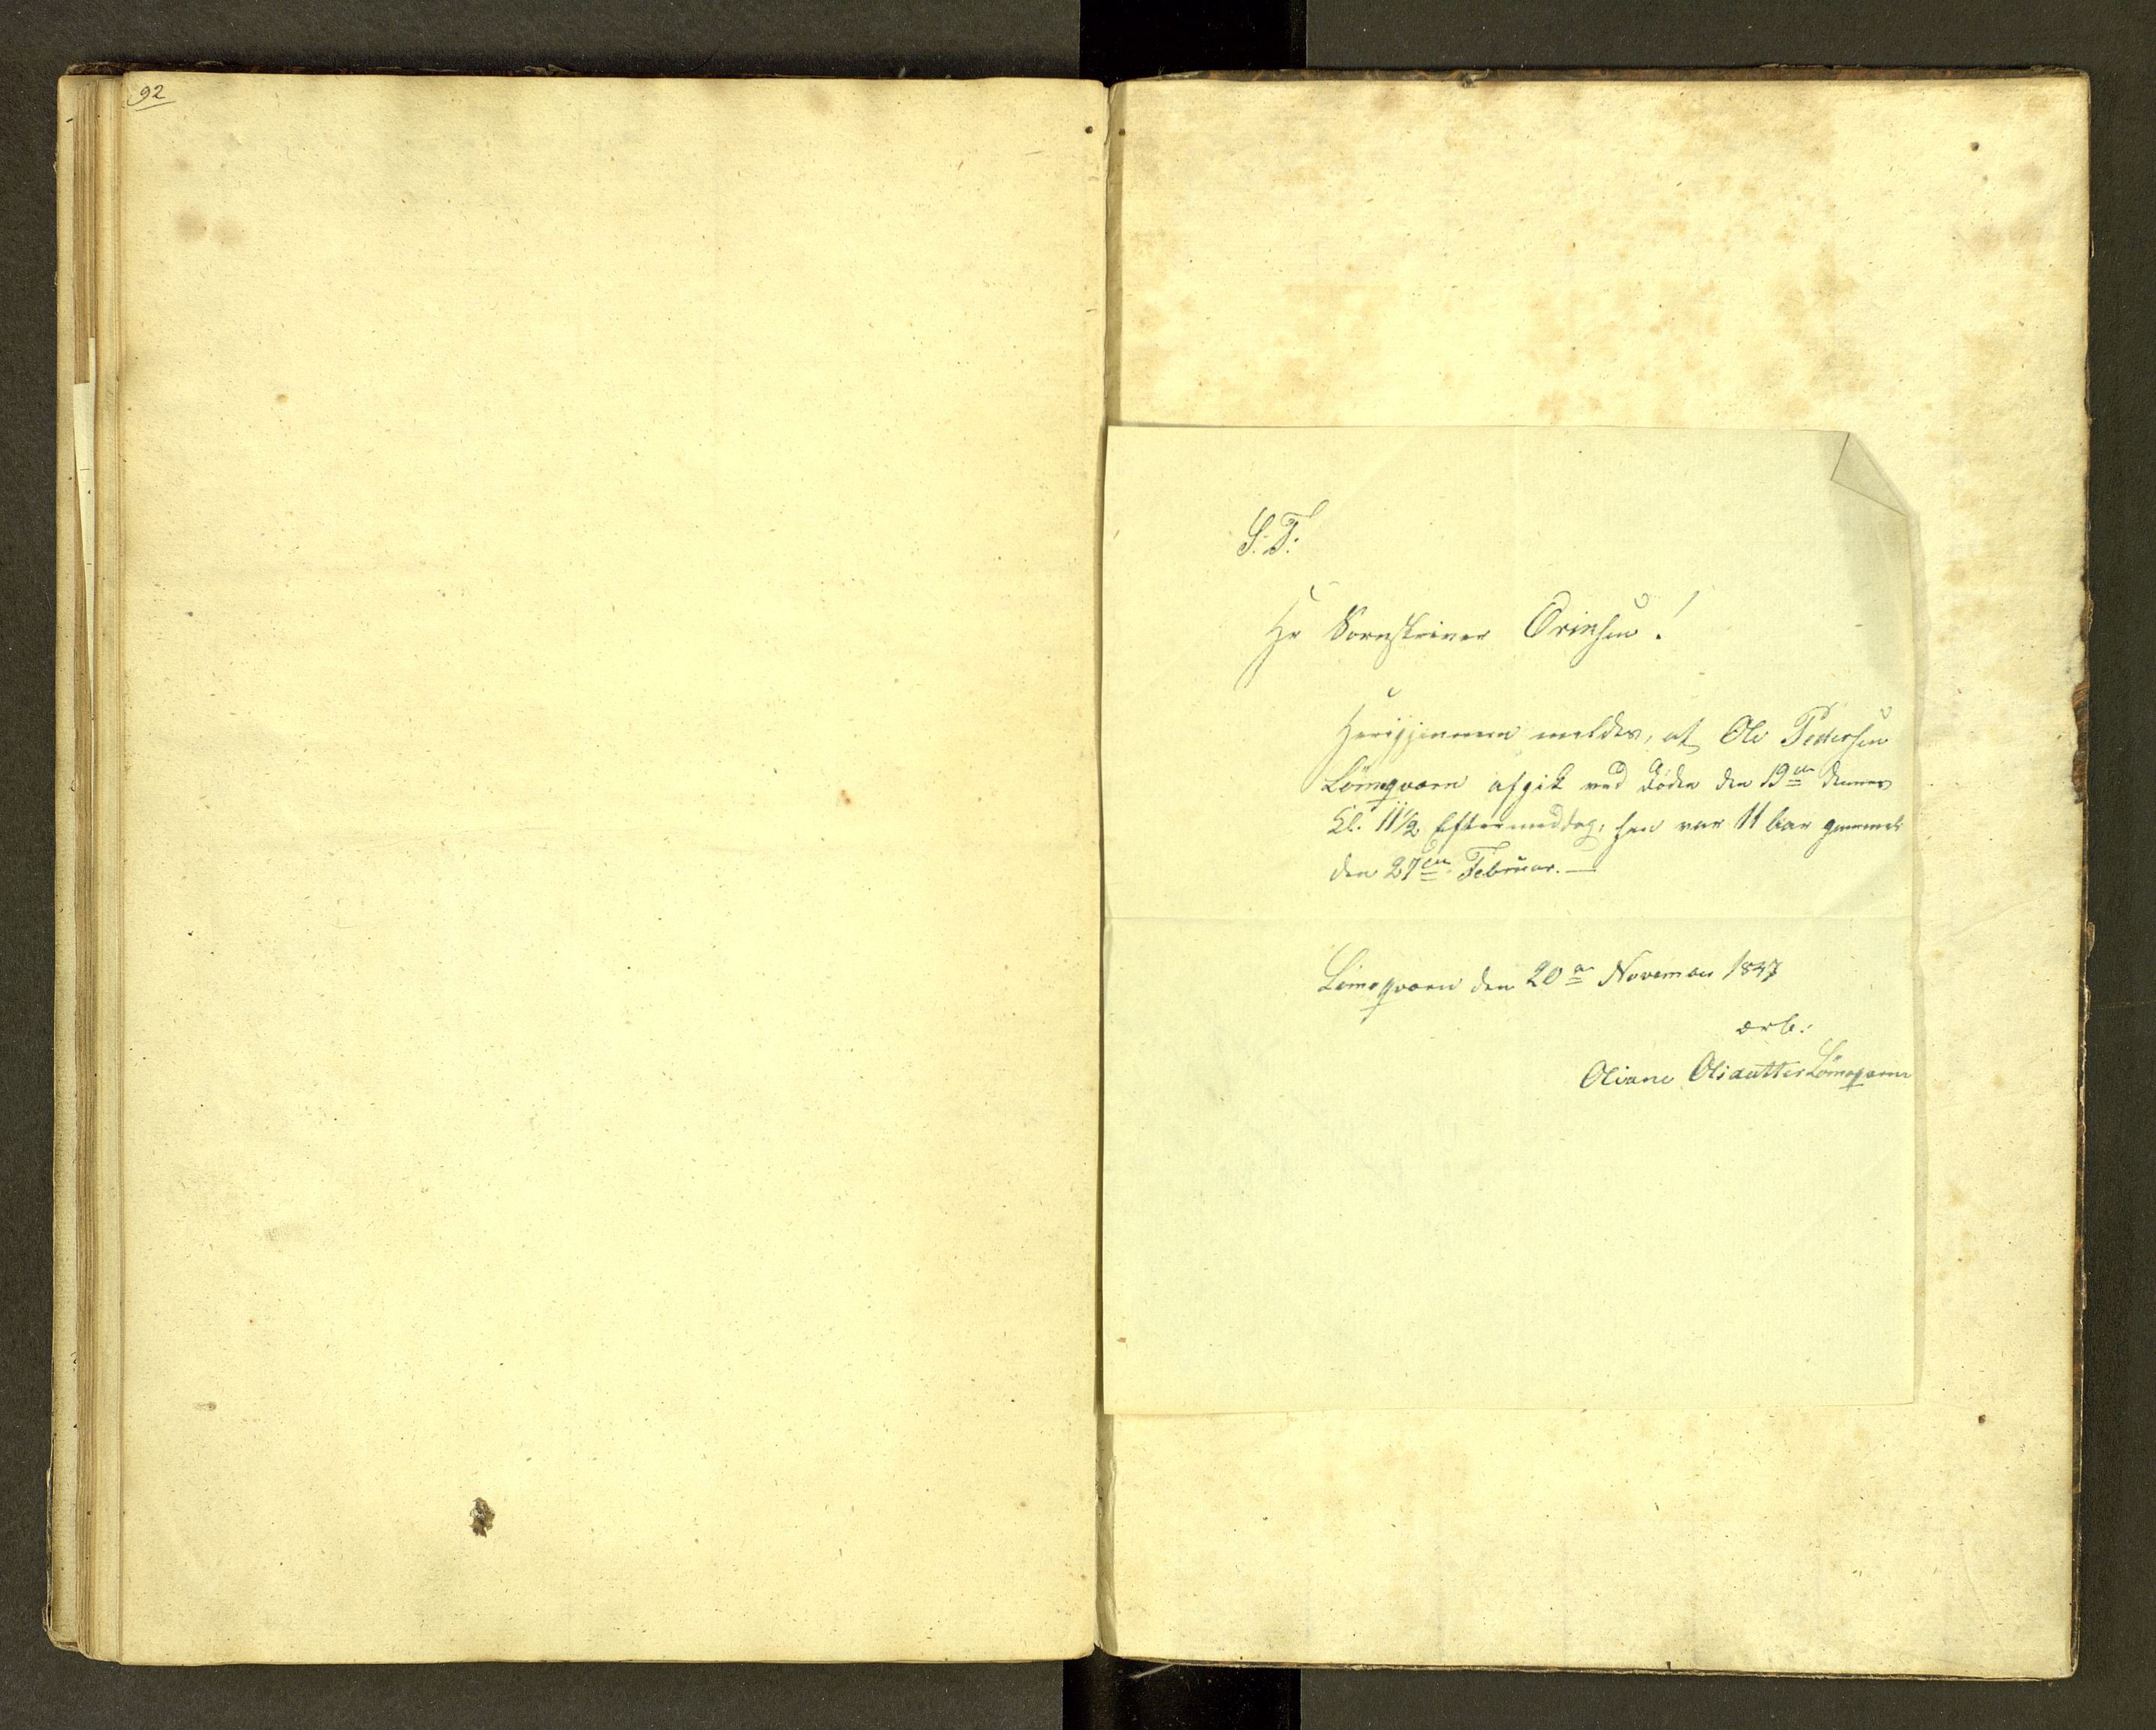 92
S. T.
Hr Sorenskriver Örensen!
Herigjennem meldes, at Ole Pedersen
Lömoqværn afgik ved Döden den 19de dennes
Kl. 11½ Eftermiddag, han var 11 Aar gammel
den 27de Februar. —
Lömoqværn den 20de November 1847
ærb:
Oliane Olsdatter Lömoqværn